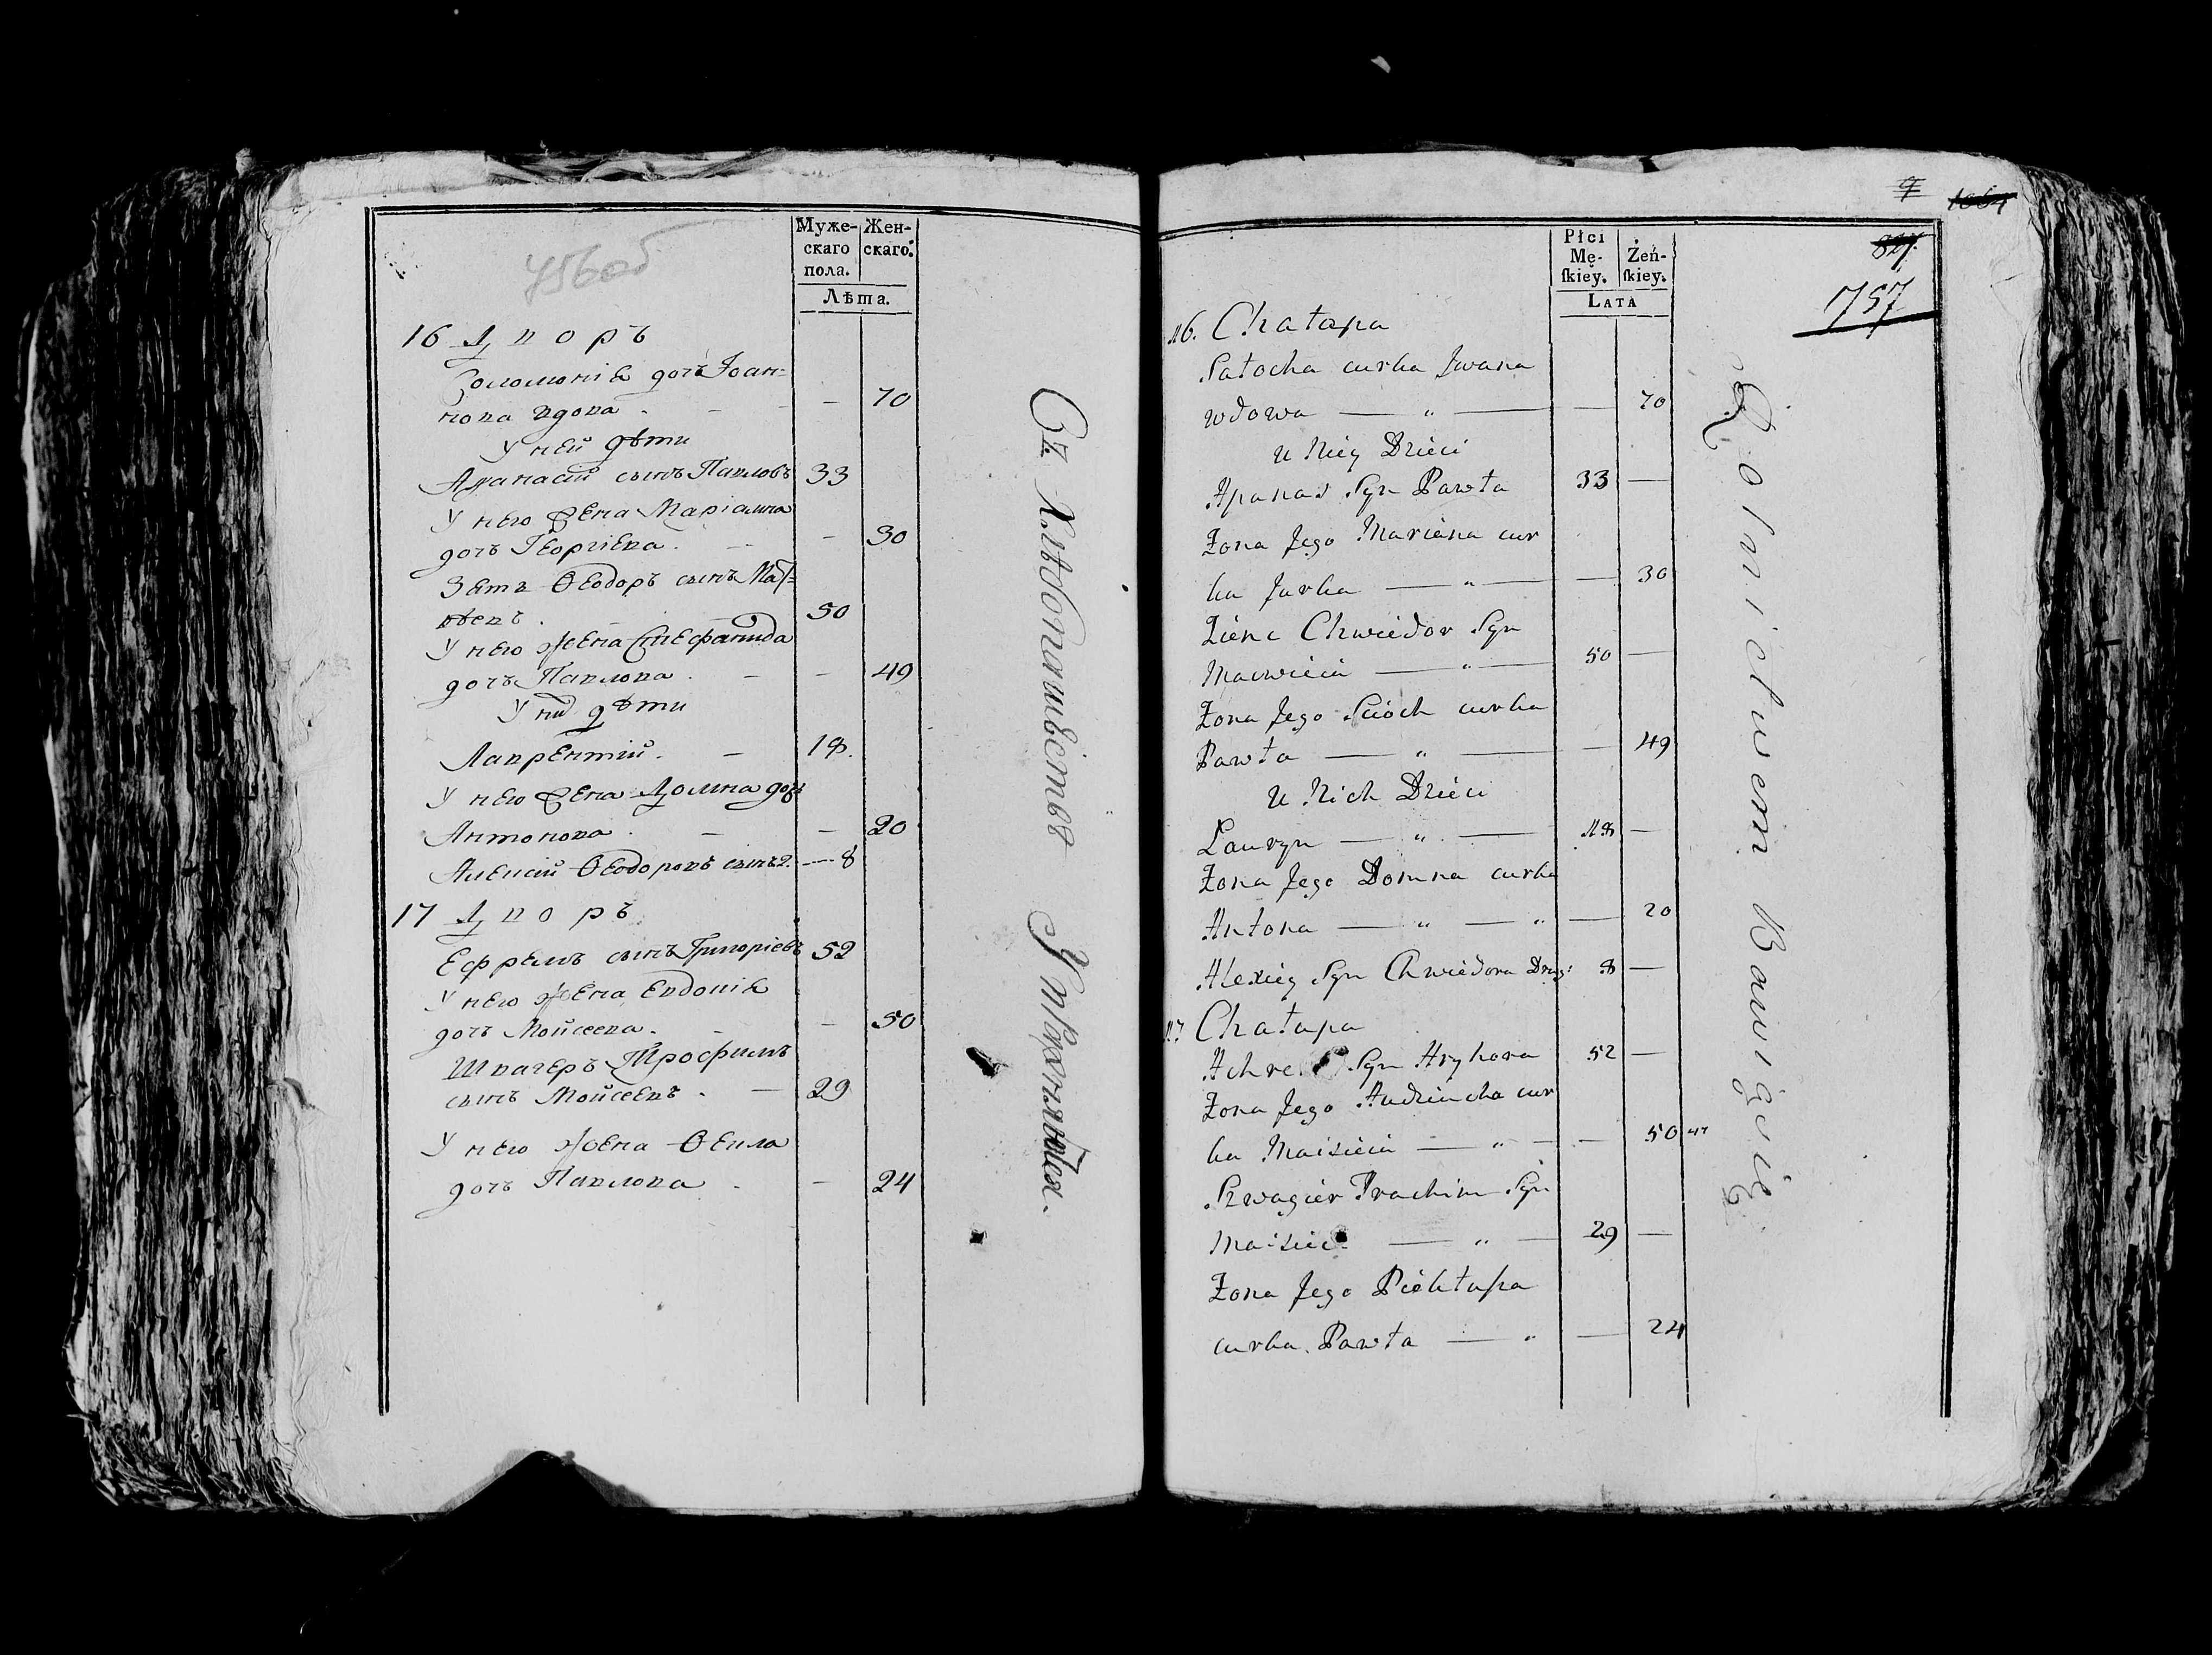 756об
Муже-
скаго
пола.
Жен-
скаго.
Лѣта.
16 Дворъ
Соломонія дочь Іоан=
нова вдова . - - - 70
У ней дѣти
Афанасій сынъ Павловъ 33
У него жена Маріанна
дочь Георгіева . - - 30
Зять Ѳеодоръ сынъ Мат=
вѣевъ . - - 50
У него жена Стефанида
дочь Павлова . - - 49
У них дѣти
Лаврентій . - 18.
У него жена Домна дочь
Антонова . - - 20
Алексій Ѳеодоровъ сынъ 2. --- 8
17 Дворъ
Ефремъ сынъ Григоріевъ 52
У него жена Евдокія
дочь Мойсеева . - - 50
Швагеръ Трофимъ
сынъ Мойсеевъ . - 29
У него жена Ѳекла
дочь Павлова . - 24
Съ Хлѣбопашества Утверждаются.
9
1664
827.
757
Płci
Mę-
ſkiey.
Żeń-
ſkiey.
LATA
16. Chałapa
Sałocha curka Jwana
wdowa — „ — — 70
u Niey Dzieci
Apanas Syn Pawła 33 —
Żona Jego Mariana cur
ka Jurka — „ — — 30
Zienc Chwiedor Syn
Macwieia — „ — 50 —
Żona Jego Scioch curka
Pawła — „ — — 49
U Nich Dzieci
Lauryn — „ — 18 —
Żona Jego Domna curka
Antona — „ — „ — 20
Alexiey Syn Chwiedora Drug: 8 —
17 Chałupa
Syn Hryhora 52 —
Żona Jego Audziucha cur
ka Maisieia — „ - — 50
Szwagier Trachim Syn
— „ — 29 —
Żona Jego Piekłupa
curka Pawła — „ — 24
Rolnictwem Bawią się.